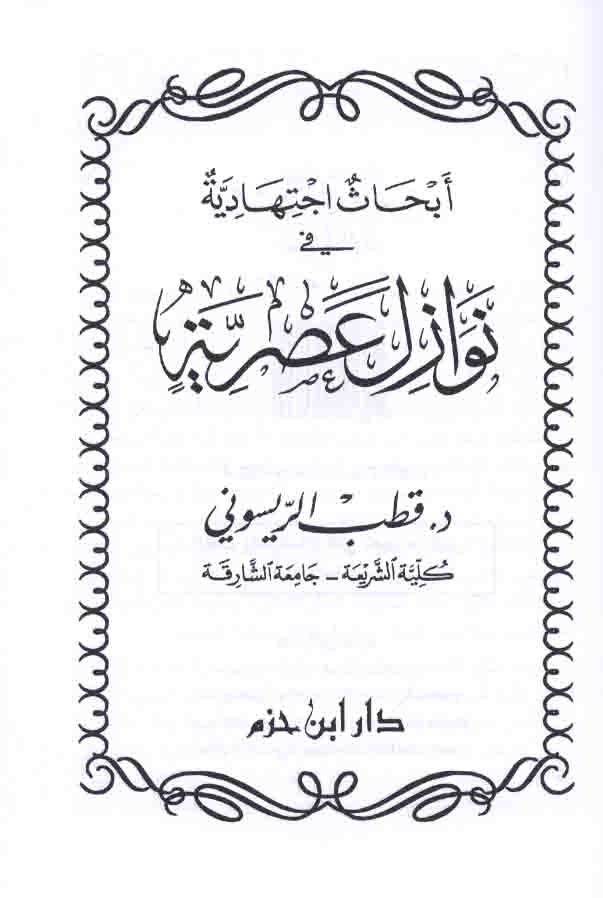 أَبْحَاثٌ اجْتِهَادِيَّةٌ
فِي
نَوَازِل عَصْرِيَّةٍ
د. قطب الريسوني
كُلِّيَّة الشَّرِيعَة - جَامِعَة الشَّارِقَة
دار ابن حزم